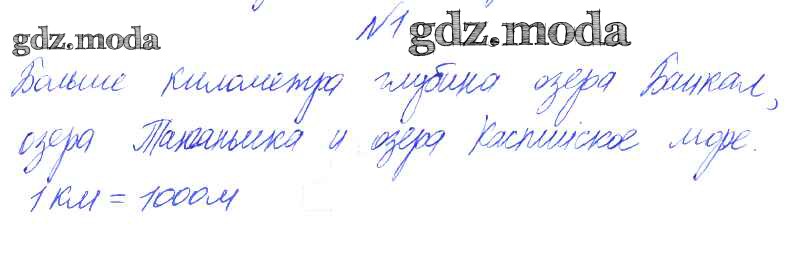 gdz.moda №1 gdz.moda
Больше километра глубина озера Байкал,
озера Танганьика и озера Каспийское море.
1 км = 1000м